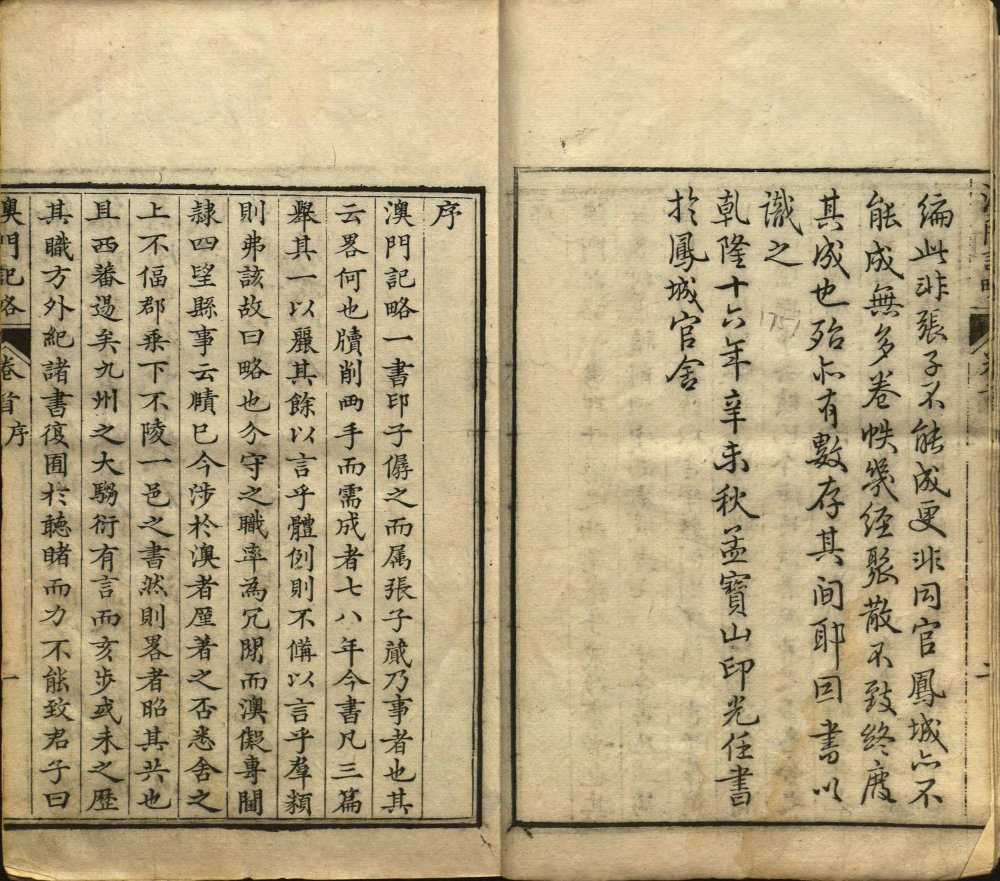 編此非張子不能成更非同官鳳城亦不
能成無多卷帙幾經聚散不致終廢
其成也殆亦有數存其间耶因書以
識之
乾隆十六年辛未秋孟寶山印光任書
於鳳城官舍
1751
序
澳門記略一書印子僝之而属張子蕆乃事者也其
云畧何也牘削兩手而需成者七八年今書凡三篇
舉其一以麗其餘以言乎體例則不備以言乎羣類
則弗該故曰略也分守之職率為冗閒而澳儗專閫
隷四望縣事云賾已今涉於澳者厪著之否悉舍之
上不偪郡乗下不陵一邑之書然則畧者昭其共也
且西蕃逷矣九州之大騶衍有言而亥步或未之歷
其職方外紀諸書復囿於聽睹而力不能致君子曰
澳門記略
卷首序
一